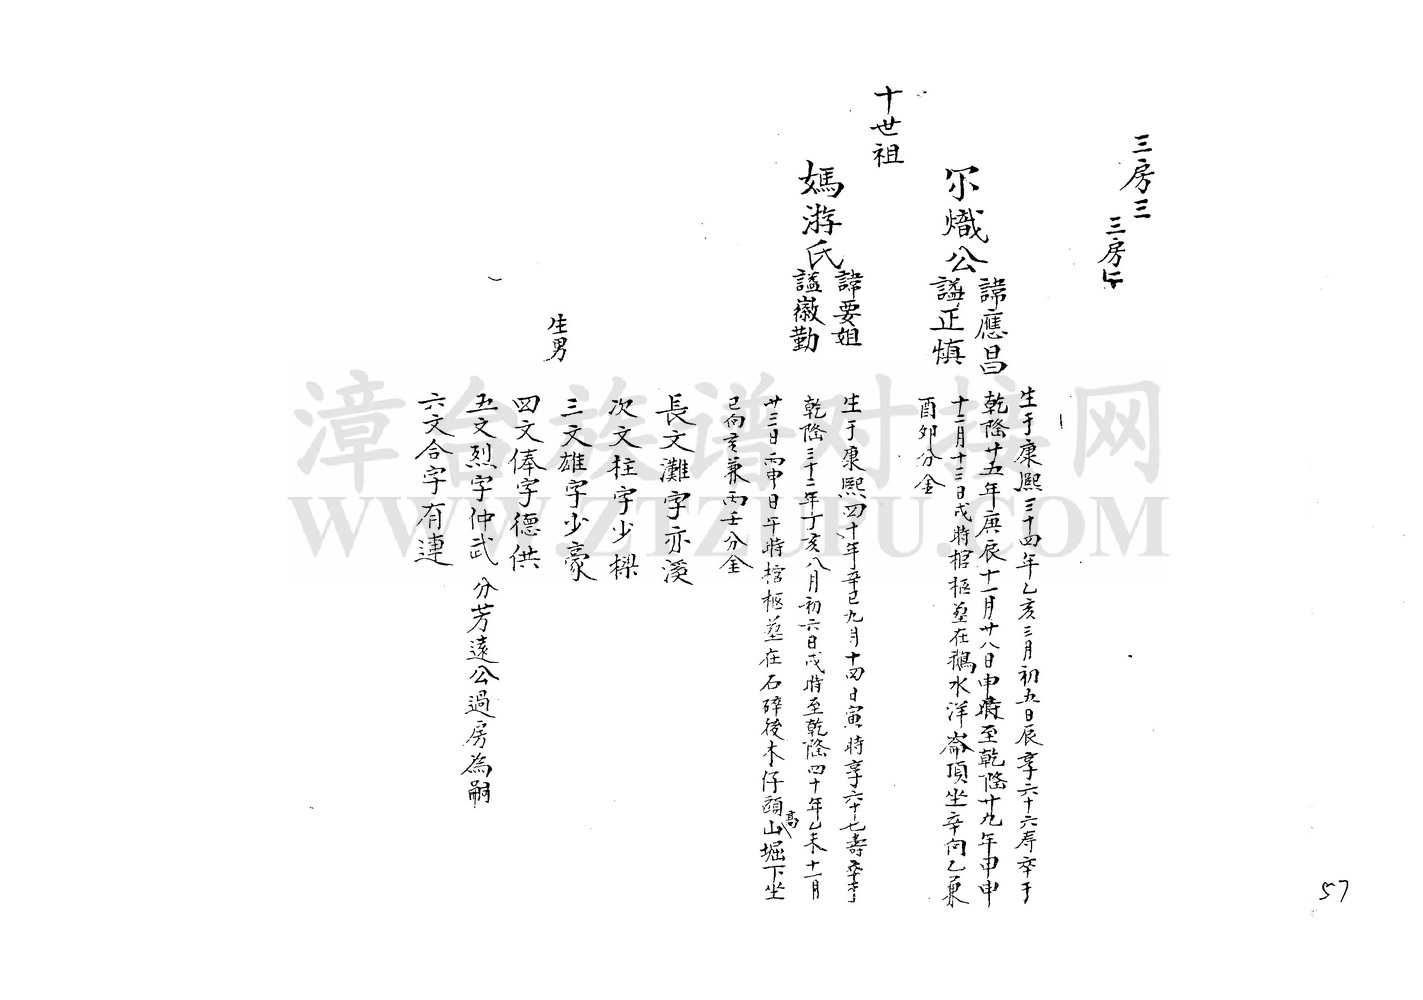 三房三
三房
十世祖
尔熾公
諱應昌
謚正慎
生于康熙三十四年乙亥三月初九日辰享六十六寿卒于
乾隆廿五年庚辰十一月廿八日申時至乾隆廿九年申申
十二月十三日戌時棺柩塟在鵝水洋崙頂坐辛向乙兼
酉卯分金
媽游氏
諱要姐
謚徽勤
生于康熙四十年辛巳九月十四日寅時享六十七壽卒于
乾隆三十二年丁亥八月初六日戌時至乾隆四十年乙未十一月
廿三日丙申日午時棺柩塟在石碎後木仔頭山高堀下坐
巳向亥兼丙壬分金
生男
長文灘字亦溪
次文柱字少樑
三文雄字少豪
四文俸字德供
五文烈字仲武 分芳遠公過房為嗣
六文合字有連
漳台族谱对接网
WWW.ZTZUPU.COM
57